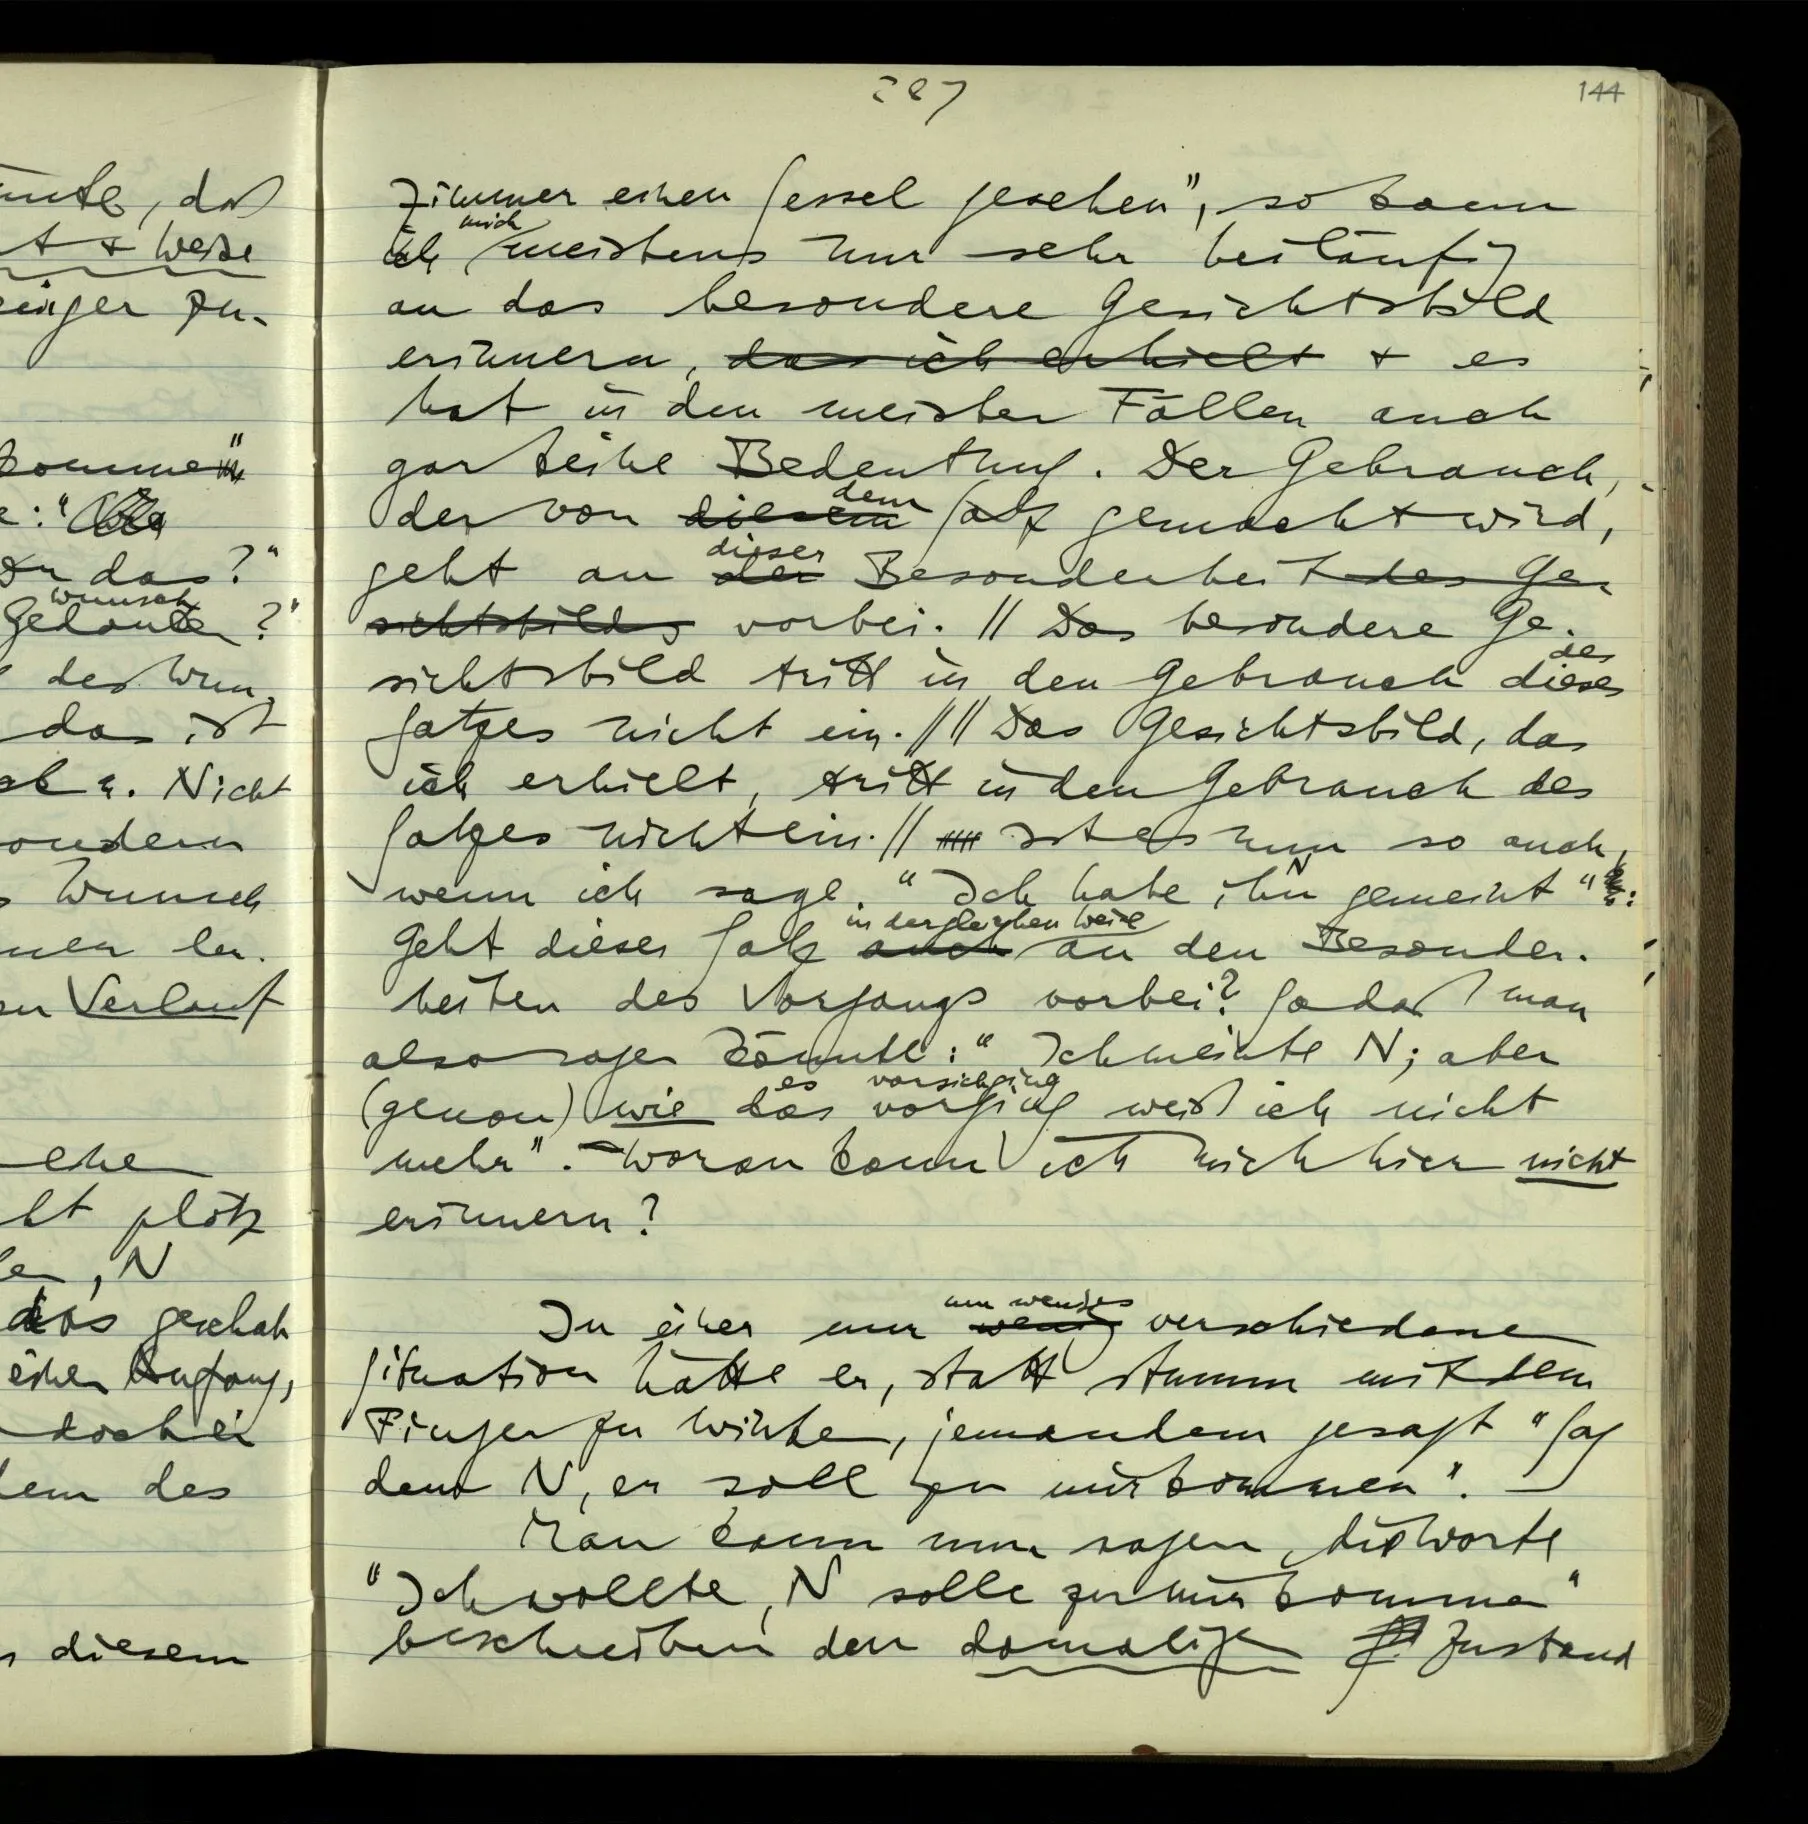 287
144
Zimmer einen Sessel gesehen", so kann
mich
ich meistens nur sehr beiläufig
an das besondere Gesichtsbild
erinnern, das ich erhielt + es
hat in den meisten Fällen auch
gar keine Bedeutung. Der Gebrauch,
dem
der von diesem Satz gemacht wird,
dieser
geht an der Besonderheit des Ge-
sichtsbildes vorbei. // Das besondere Ge-
des
sichtsbild tritt in den Gebrauch dieses
Satzes nicht ein. // // Das Gesichtsbild, das
ich erhielt, tritt in den Gebrauch des
Satzes nicht ein. // Ist es nun so auch,
N
wenn ich sage: "Ich habe ihn gemeint":
in der gleichen Weise
Geht dieser Satz auch an den Besonder-
heiten des Vorgangs vorbei? Sodaß man
also sagen könnte: "Ich meinte N; aber
es vorsichging
(genau) wie das vorging weiß ich nicht
mehr". – Woran kann ich mich hier nicht
erinnern?
um weniges
In einer nur wenig verschiedenen
Situation hätte er, statt stumm mit dem
Finger zu winken, jemandem gesagt "Sag
dem N, er soll zu mir kommen". –
Man kann nun sagen, die Worte
"Ich wollte, N solle zu mir kommen"
beschreiben den damaligen Zustand
daß
t + Weise
niger zu-
kommen"
Du das?"
wunsch
Gedanken?"
des Wun-
das ist
Nicht
sondern
Wunsch
Verlauf
plötz
N
das geschah
einen Anfang,
dem des
diesem